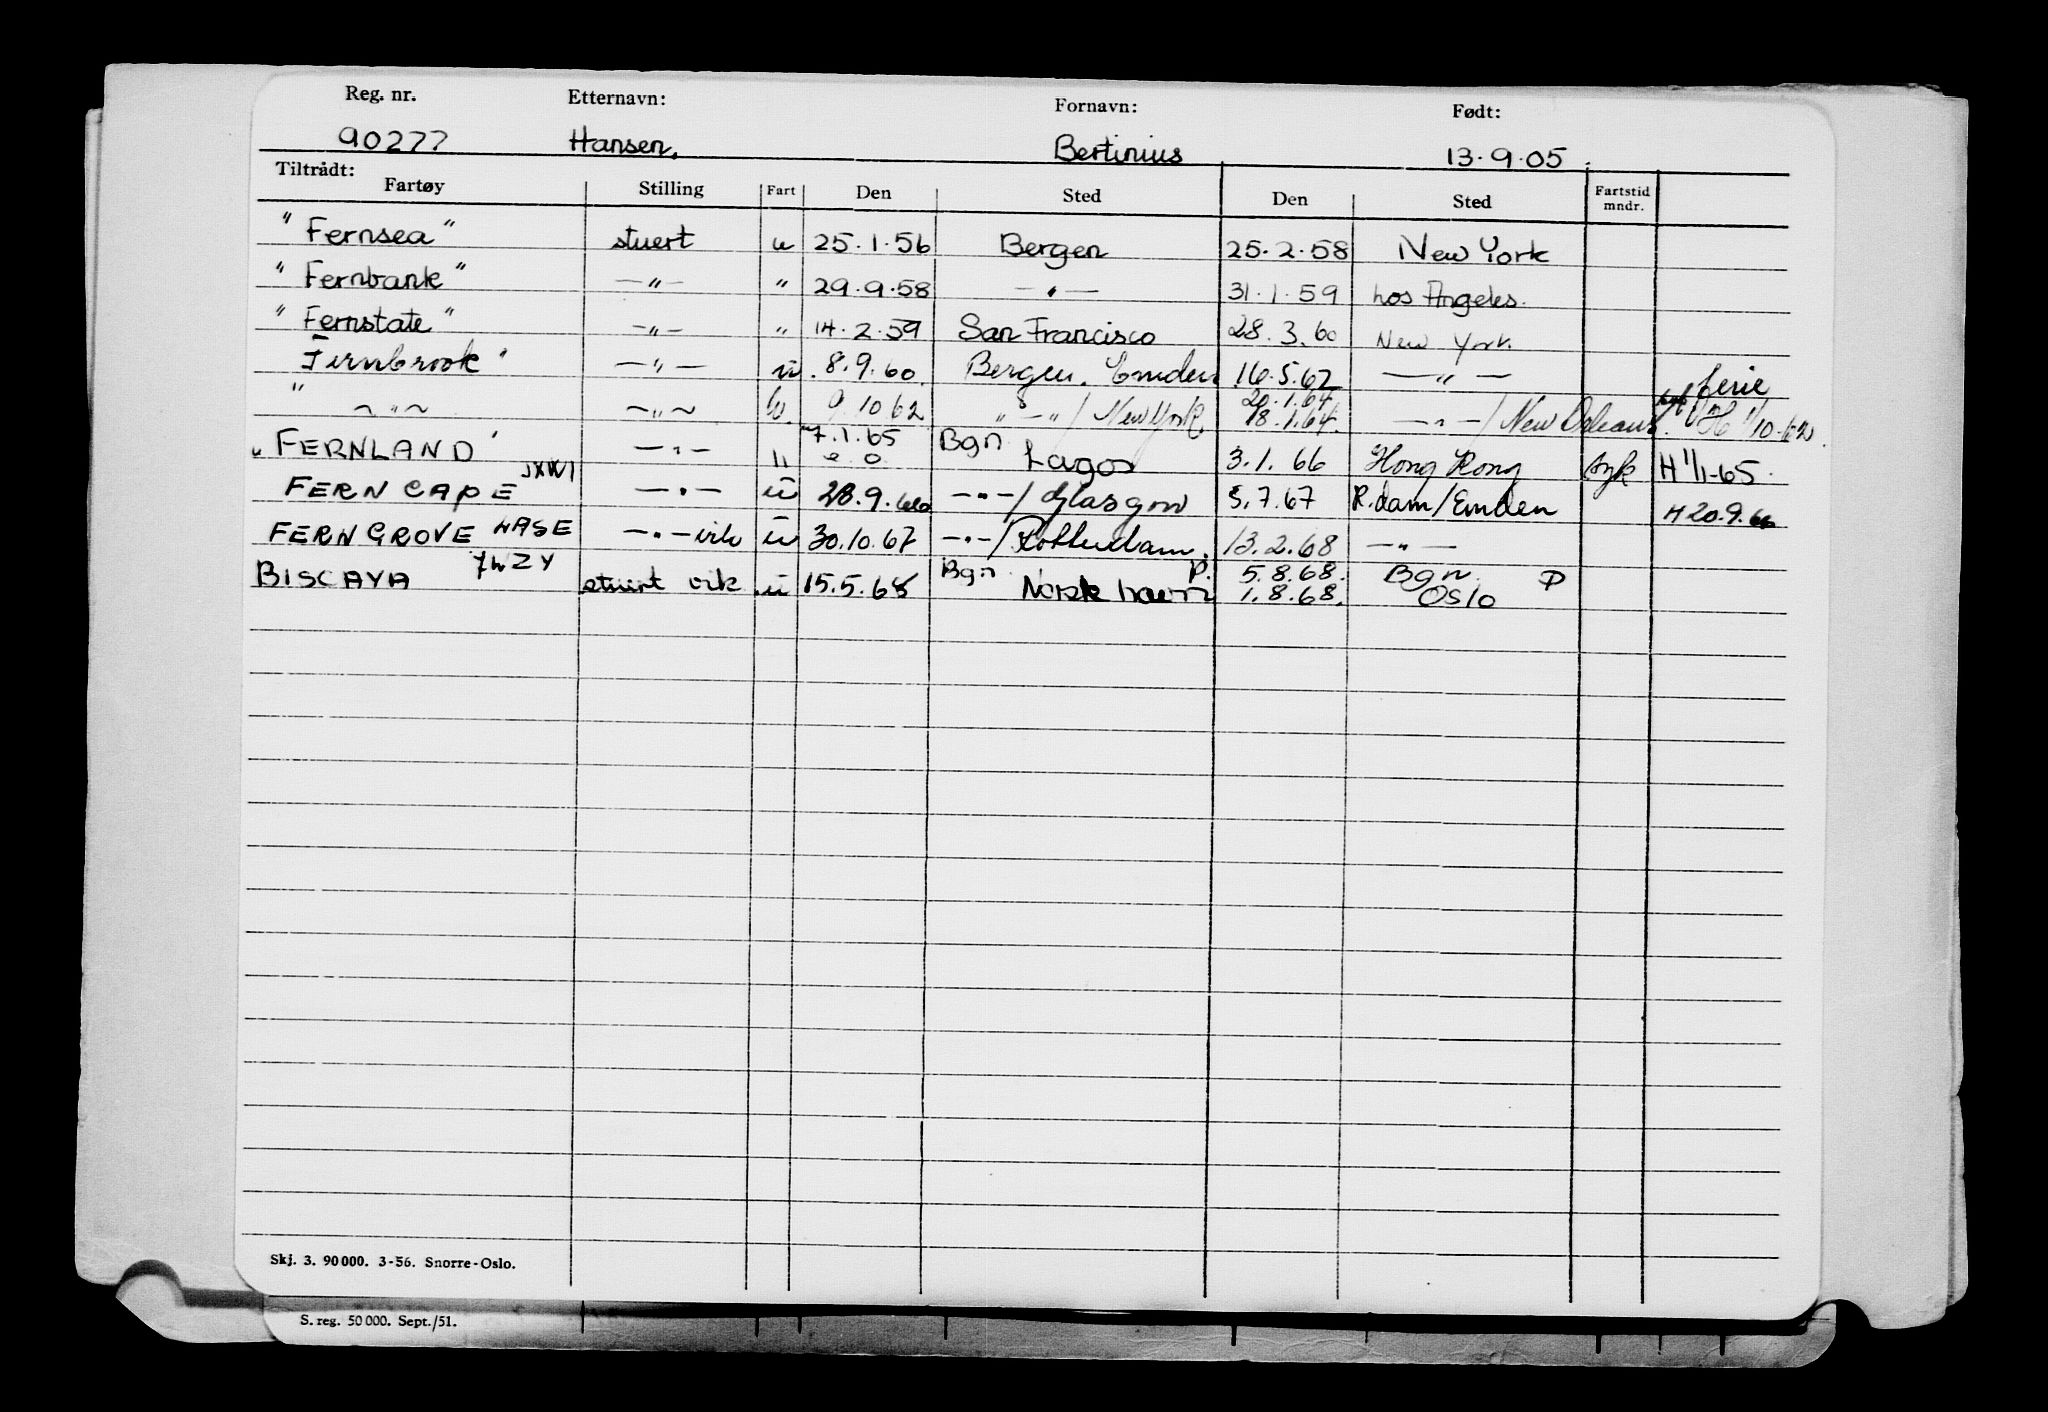 Reg. nr. Etternavn: Fornavn: Født:
90277 Hansen, Bertinius 13.9.05
Tiltrådt:
Fartøy Stilling Fart Den Sted Den Sted Fartstid mndr.
" Fernsea " stuert u 25.1.56 Bergen 25.2.58 New York
" Fernbank " —"— " 29.9.58 —"— 31.1.59 Los Angeles.
" Fernstate " —"— " 14.2.59 San Francisco 28.3.60 New York.
" Fernbrook " —"— u. 8.9.60. Bergen. Emden 16.5.62 —"— ferie
—"— —"— u. 9.10.62 —"—/New York. 20.1.64 18.1.64. —"—/New Orleans. H 1/10-62.
" FERNLAND " —"— u 7.1.65 Bgn Lagos 3.1.66 Hong Kong syk H 1/1-65.
FERNCAPE JXWI —"— u 28.9.66 —"—/Glasgow 5.7.67 R.dam/Emden H 20.9.66
FERNGROVE HASE —"— vik u 30.10.67 —"—/Rotterdam. 13.2.68 —"—
BISCAYA stuert vik u 15.5.68 Bgn P. 5.8.68. Bgn P
Norsk havn 1.8.68. Oslo
Skj. 3. 90000. 3-56. Snorre-Oslo.
S. reg. 50000. Sept./51.